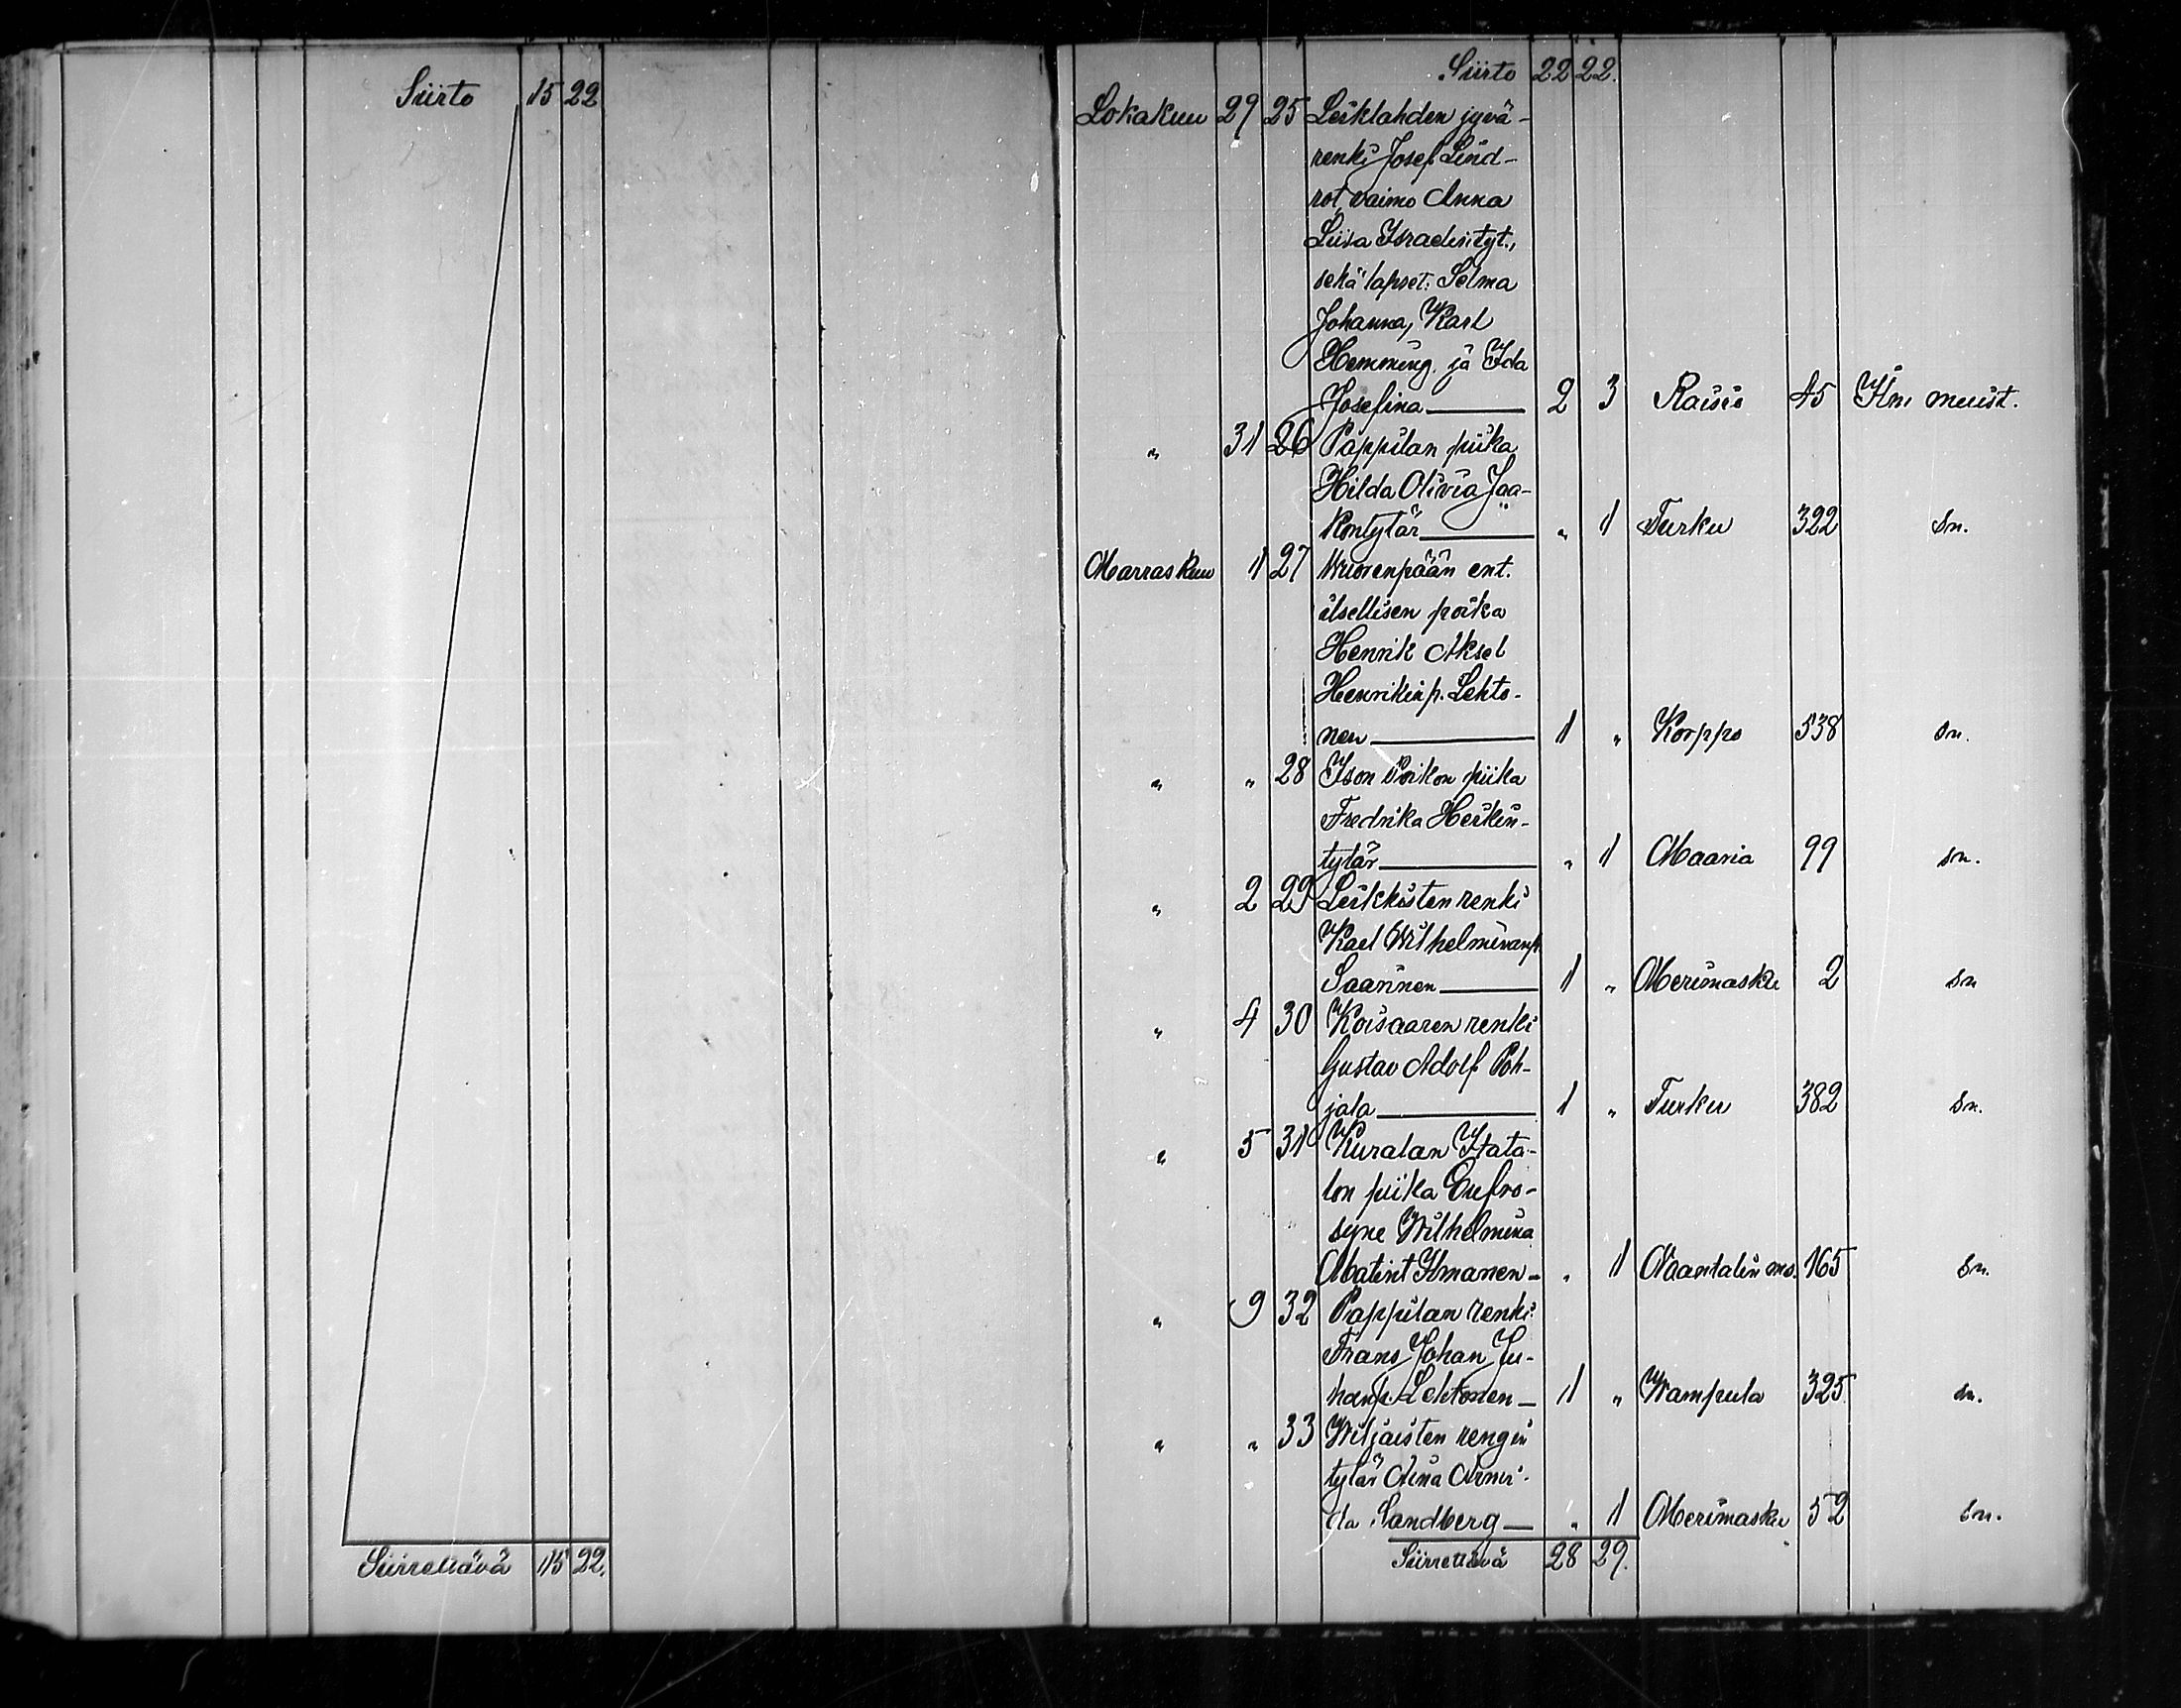 Siirto 15 22
Siirrettävä 15 22.
Siirto 22 22.
Lokakuu 29 25 Leiklahden jyvä-
renki Josef Lind-
rot, vaimo Anna
Liisa Israelintyt.,
sekä lapset: Selma
Johanna, Karl
Hemming ja Ida
Josefina 2 3 Raisio 45 Ilm. muist.
" 31 26 Pappilan piika
Hilda Olivia Jaa-
kontytär " 1 Turku 322 sn.
Marraskuu 1 27 Wuorenpään ent.
itsellisen poika
Henrik Aksel
Henrikinp. Lehto-
nen 1 " Korppo 538 sn.
" " 28 Ison Poikon piika
Fredrika Heikin-
tytär " 1 Maaria 99 sn.
" 2 29 Leikkisten renki
Karl Wilhelminanp.
Saarinen 1 " Merimasku 2 sn
" 4 30 Koisaaren renki
Gustav Adolf Poh-
jala 1 " Turku 382 sn.
" 5 31 Kuralan Itata-
lon piika Eufro-
syne Wilhelmina
Matint. Ilmanen " 1 Naantalin ms. 165 sn.
" 9 32 Pappilan renki
Frans Johan Ju-
hanp. Lehtonen 1 " Wampula 325 sn.
" " 33 Wiljaisten rengin
tytär Aina Armi-
da Sandberg " 1 Merimasku 52 sn.
Siirrettävä 28 29.